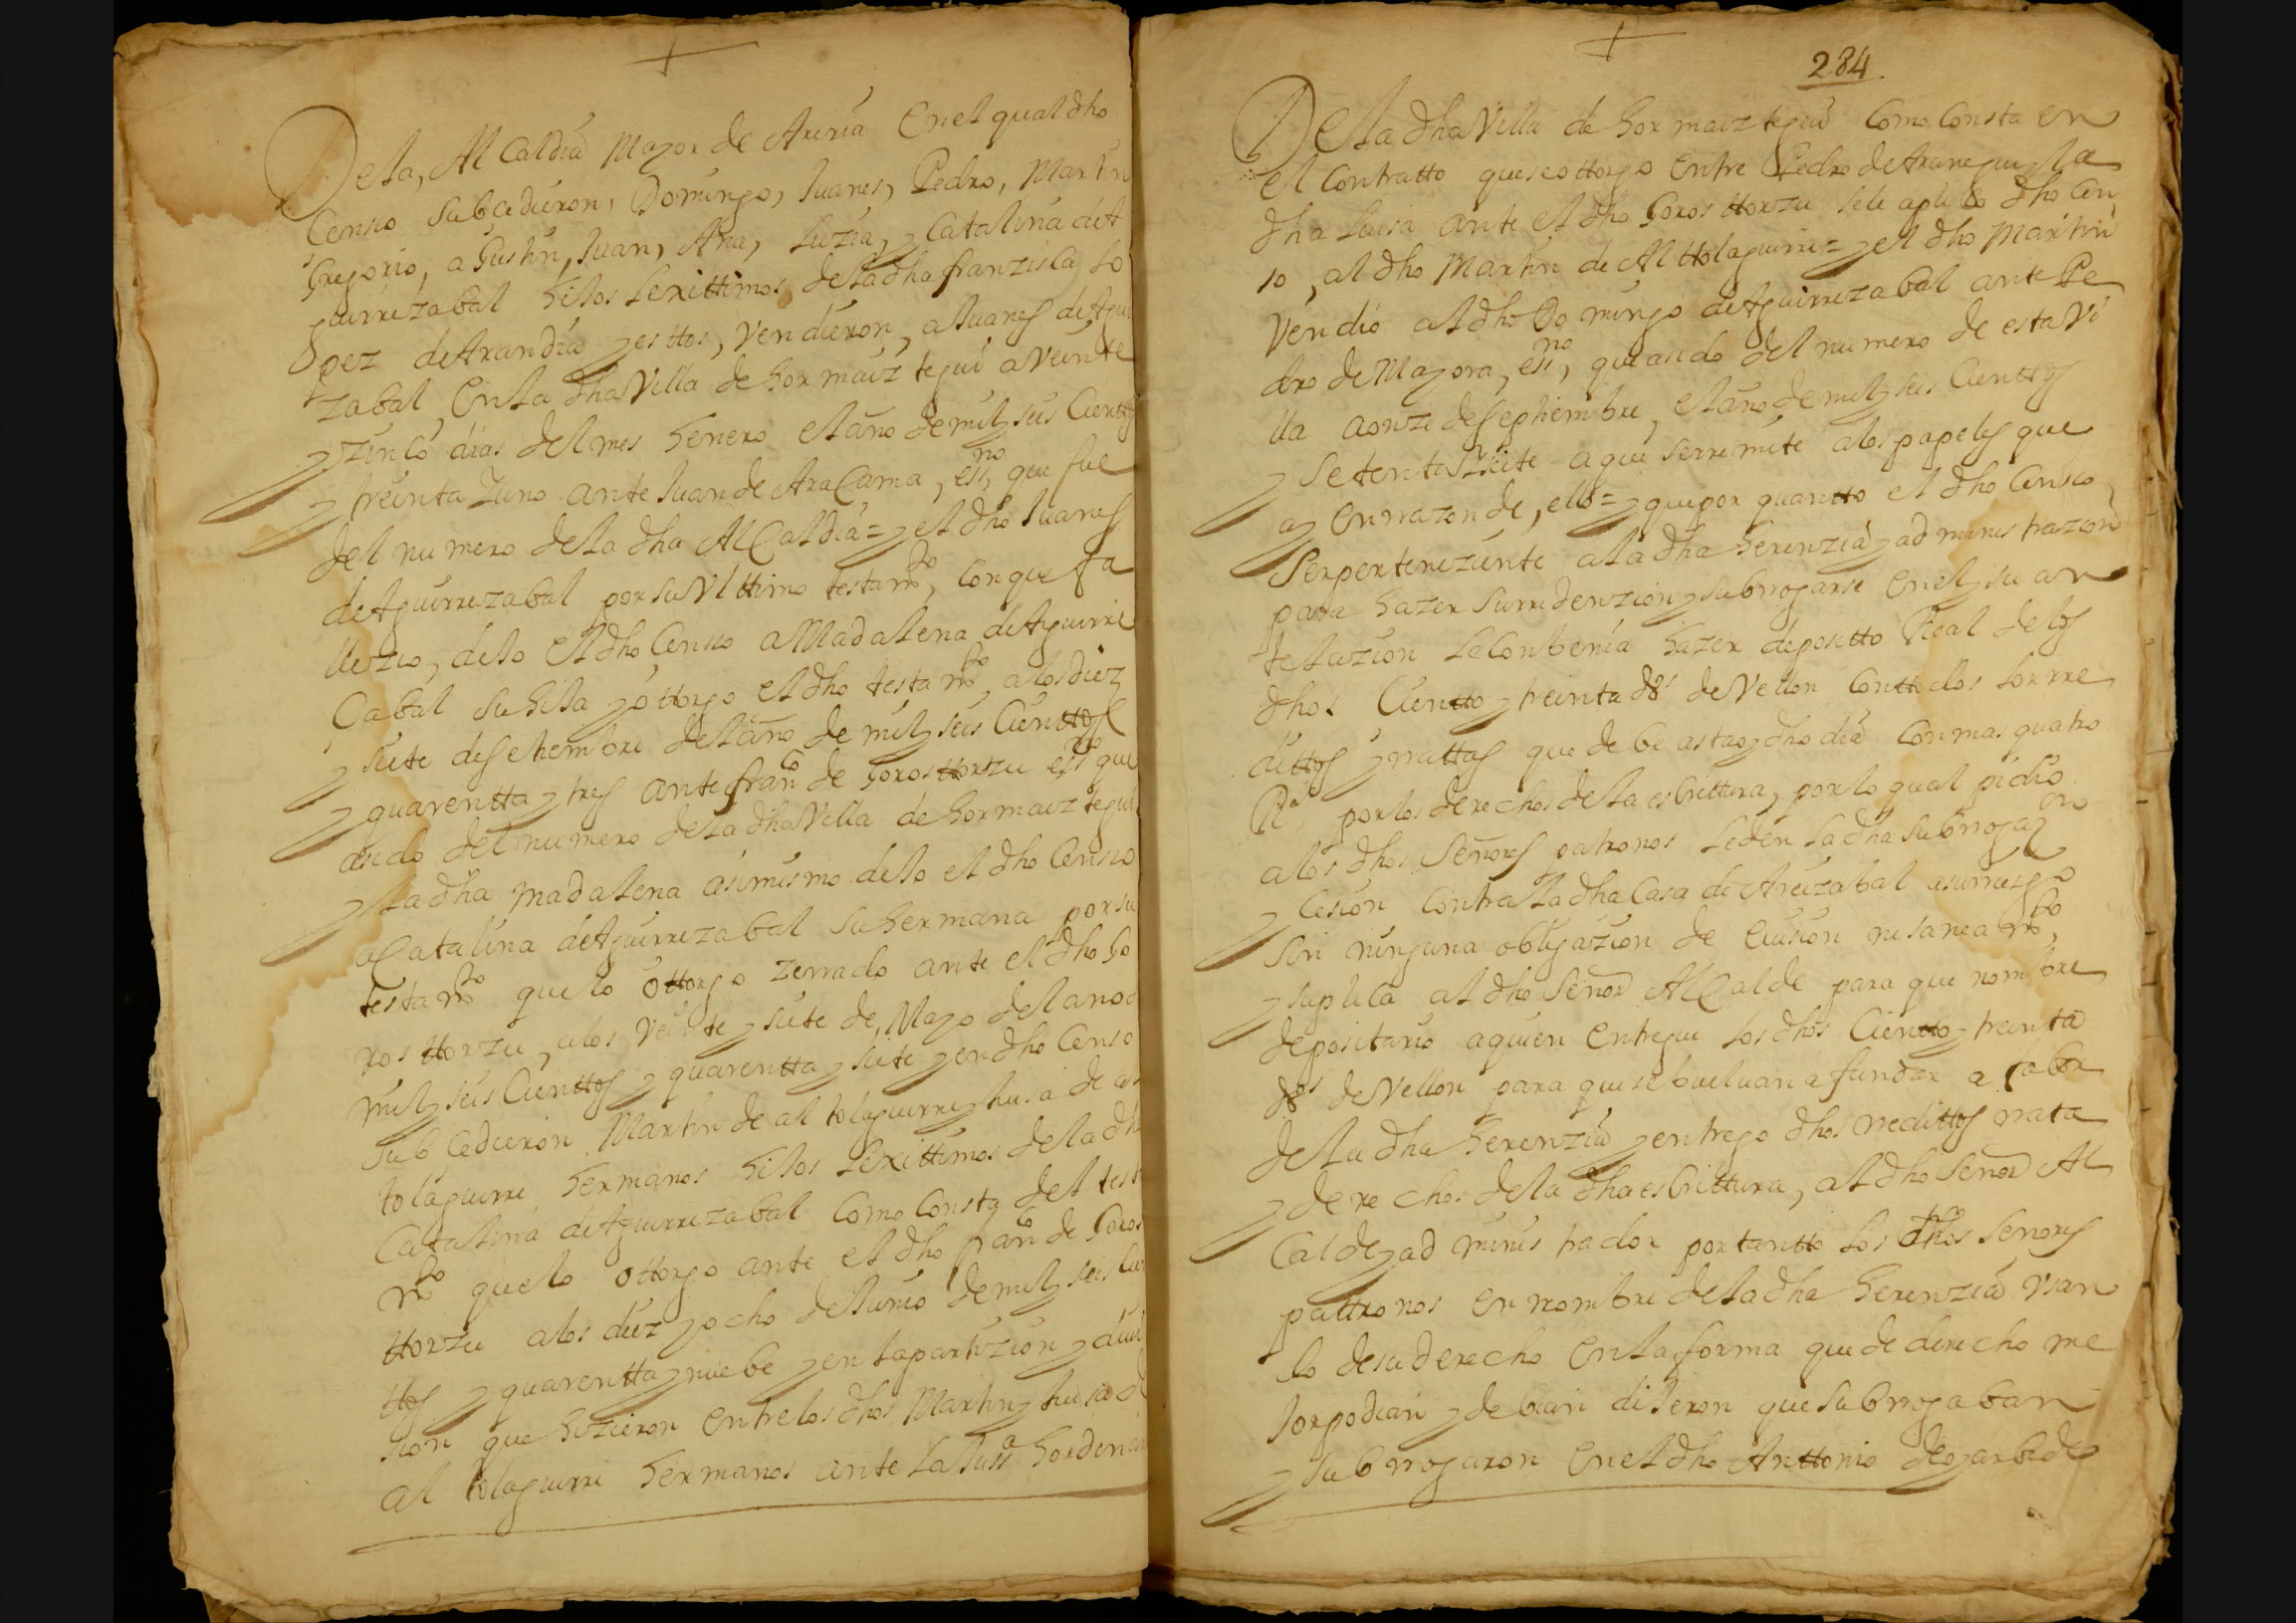 Desta, AlCaldia Mayor de Areria En el qual dho
Censso subcedieron, Domingo, Juanes, Pedro, Martin
Gregorio, agustin, Juan, Ana, Luzia, y Catalina de A
guirrezabal hijos Lexittimos de la dha franzisca Lo
pez de Arandia y esttos, vendieron, a Juanes de Agui
zabal En la dha Villa de hormaiztegui a veinte
y zinco dias del mes henero el año de mil y seis Cientos
y treinta y uno ante Juan de AraCama, essno que fue
del numero de la dha AlCaldia = y el dho Juanes
de Aguirrezabal por su Ulttimo testamto, con que fa
llezio, dejo el dho Censso a Madalena de Aguirre
Cabal su hija y ottorgo el dho testamto a los diez
y siete de setiembre del año de mil y seis Cienttos
y quarentta y tres ante franco de Gorosttorzu essno que
a sido del numero de la dha Villa de hormaiztegui
y la dha madalena asimismo dejo el dho Censso
a Catalina de Aguirrezabal su hermana por su
testamto que lo ottorgo zerrado ante el dho Go
rosttorzu, a los veinte y siete de Mayo del año d
mil y seis Cienttos y quarentta y siete y en dho Censo
subcedieron Martin de altolaguirre y luisa de al
tolaguirre hermanos hijos Lexittimos de la dha
Catalina de Aguirrezabal Como Consta del test
mto que lo ottorgo ante el dho franco de Goros
ttorzu a los diez y ocho de Junio de mil y seis Cien
ttos y quarentta y nuebe y en la partizion y divi
sion que hizieron Entre los dhos Martin y luisa d
altolaguirre hermanos ante la Jussa hordenar
284
De la dha Villa de hormaiztegui Como Consta en
el Contratto que se ottorgo Entre Pedro de Aranegui y la
dha Luisa ante el dho Gorosttorzu se le aplico dho Cen
so, al dho Martin de Alttolaguirre = y el dho Martin
Vendio al dho Domingo de Aguirrezabal ante Pe
dro de Mayora, essno, que a sido del numero de esta Vi
lla a onze de septiembre, el año de mil y seis Cienttos
y setenta y siete a que se rremite a los papeles que
ay En rrazon de, ello = y que por quantto el dho Censso
Ser pertenezientte a la dha herenzia y administrazion
para hazer su rredenzion y subrrogarse en el y su an
telazion le Conbenia hazer deposetto Real de los
dhos Cientto y treinta ds de Vellon Con ttodos los rre
dittos y rrattas que debe asta oy dho dia Con mas quatro
Rs por los derechos de la escrittura, por lo qual pidio
a los dhos Señores patronos le den la dha subrrogazon
y Cesion Contra la dha Casa de Areizabal a su rriesgo
sin ninguna obligazion de Eviccion ni saneamto,
y suplica al dho Señor AlCalde para que nombre
depositario a quien Entregue los dhos Cientto y treinta
ds de Vellon para que se buelvan a fundar a fabor
de la dha herenzia y entrego dhos rredittos rrata
y derechos de la dha escrittura, al dho Señor Al
Calde y administrador por tantto los dhos Señores
pattronos en nombre de la dha herenzia Usan
do de su derecho En la forma que de derecho me
Jor podian y debian dijeron que subrrogaban
y subrrogaron En el dho Anttonio de ogarbide